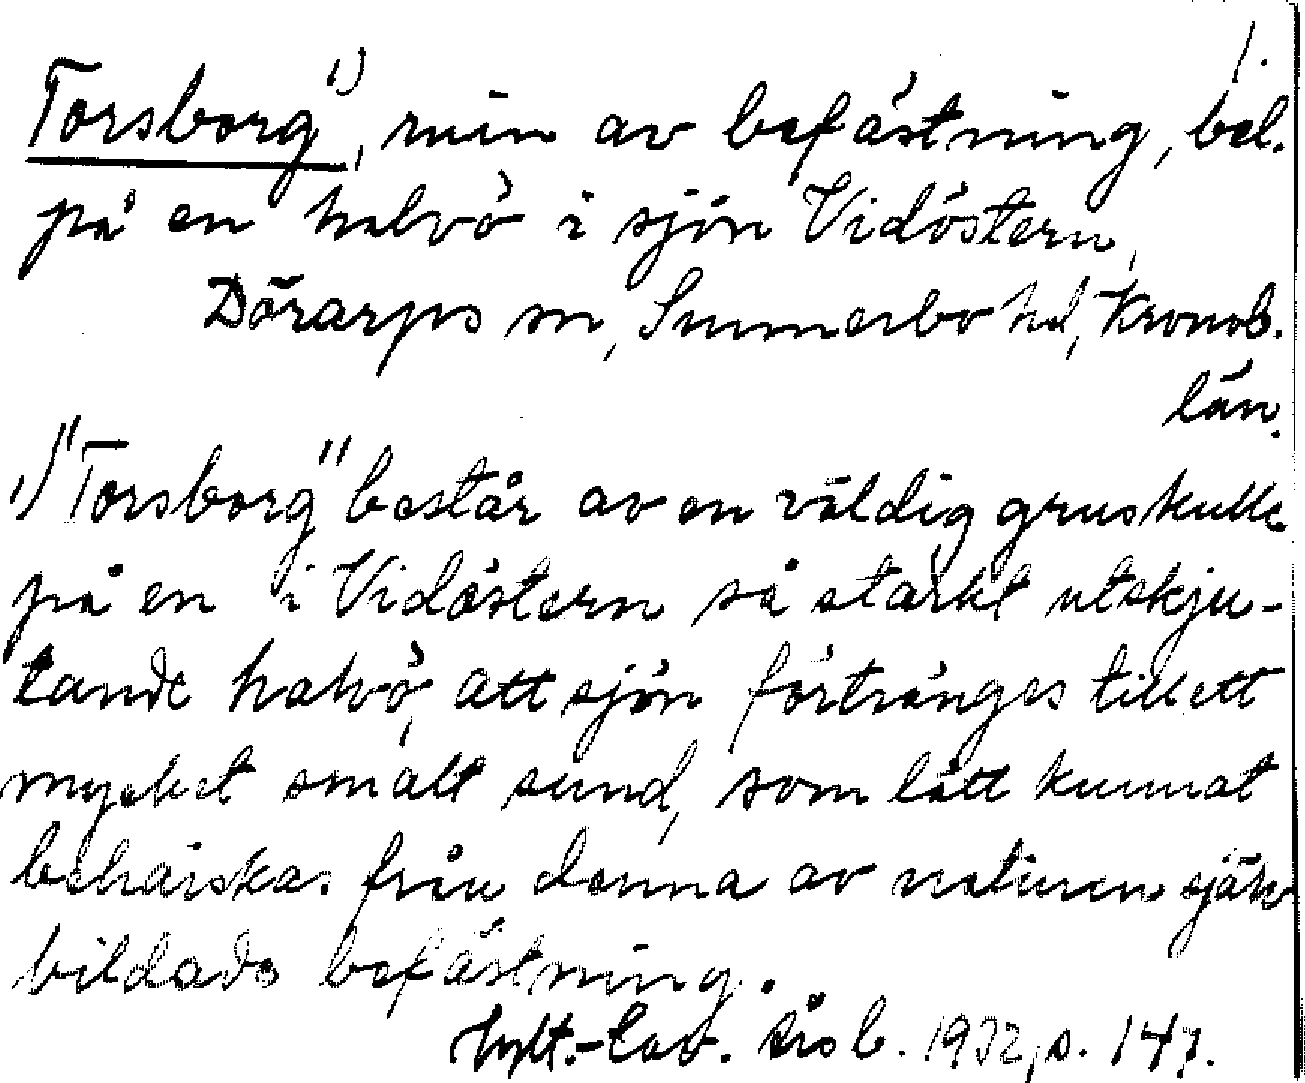 1.
Torsborg¹⁾, ruin av befästning, bel.
på en halvö i sjön Vidöstern,
Dörarps sn, Sunnerbo hd, Kronob.
län.
1) "Torsborg" består av en väldig gruskulle
på en i Vidöstern så starkt utskju-
tande halvö, att sjön förtränges till ett
mycket smalt sund, som lätt kunnat
behärskas från denna av naturen själv
bildade befästning.
Hylt.-Cav. årsb. 1932, s. 147.